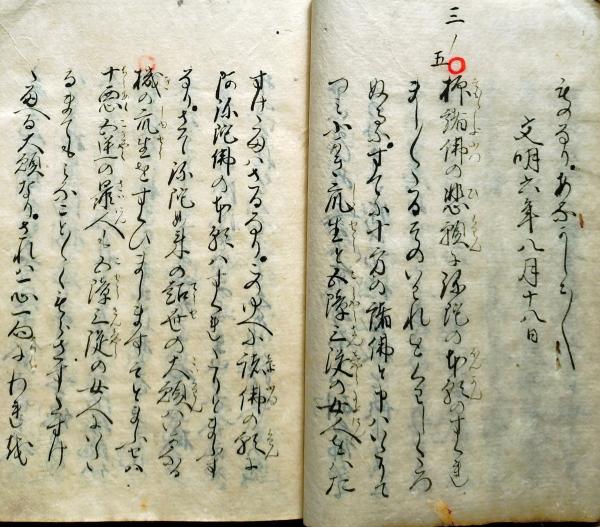 ものなり。あなかしこ〱
文明六年八月十八日
三ノ五
抑諸佛の悲願に弥陀の本願のすくれ
まし〱たるそのいはれをくはしくたつ
ぬるにすてに十方の諸佛と申はいたりて
つみふかき衆生と五障三従の女人をはた
すけたまはさるなり。このゆへに諸佛の願に
阿弥陀佛の本願はすくれたりとまふす
なり。さて弥陀如来の超世の大願はいかなる
機の衆生をすくひましますそとまふせは
十悪五逆の罪人も五障三従の女人にいた
るまてもみなこと〱くもらさすたすけ
ゝまへる大願なり。されは一心一向にわれを